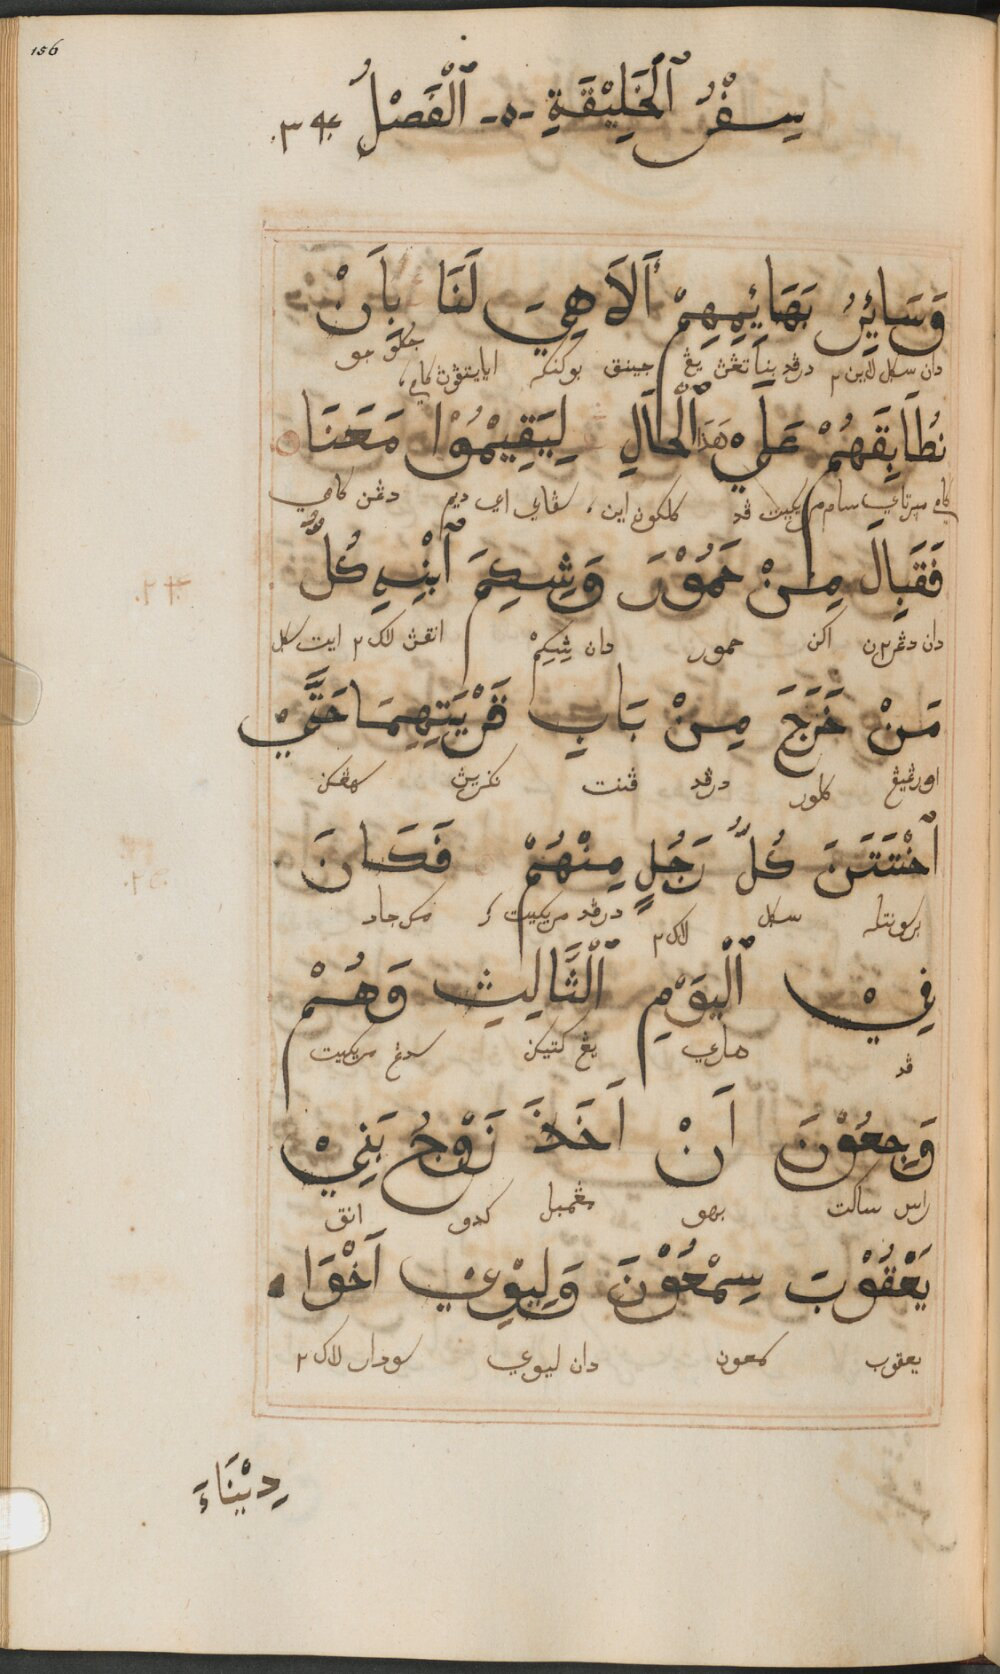 156
سِفْرُ ٱلْخَلِيْقَةِ -٥- ٱلْفَصْلُ ٣٤
وَسَائِرُ بَهَائِمِهِمْ أَلاَ هِيَ لَنَا بِاَنْ
دان سکل لاين٢ درڤد بناتڠن يڠ جينق بوکنکه
نُطَابِقَهُمْ عَلَي هَذَا ٱلْحَالِ لِيَقِيْمُوْا مَعَنَا
کامي سرتاي سام مريکيت ڤد کلکون اين، سڤاي اي ديم دڠن کامي
فَقَبِلَ مِنْ حَمُوْرَ وَشِكِمَ ٱبْنِهِ كُلُّ
دان دڠر٢ن اکن حمور دان شِكِمْ انقڽ لاک٢ ايت سکل
مَنْ خَرَجَ مِنْ بَابِ قَرْيَتِهِمَا حَتَّي
اورڠيڠ کلور درڤد ڤنت نکريڽ سهڠک
ٱخْتَتَنَ كُلُّ رَجُلٍ مِنْهُمْ فَكَانَ
برسونتله سکل لاک٢ درڤد مريکيت مک جاد
فِيْ ٱلْيَوْمِ ٱلثَّالِثِ وَهُمْ
ڤد هاري يڠ کتيک سدڠ مريکيت
وَجِعُوْنَ اَنْ اَخَذَ زَوْجُ بَنِيْ
راس ساکت بهو مڠمبل کدو انق
يَعْقُوْبَ سِمْعُوْنَ وَلِيْوِيْ اَخْوَا
يعقوب سمعون دان ليوي سودار لاک٢
دِيْنَاءَ